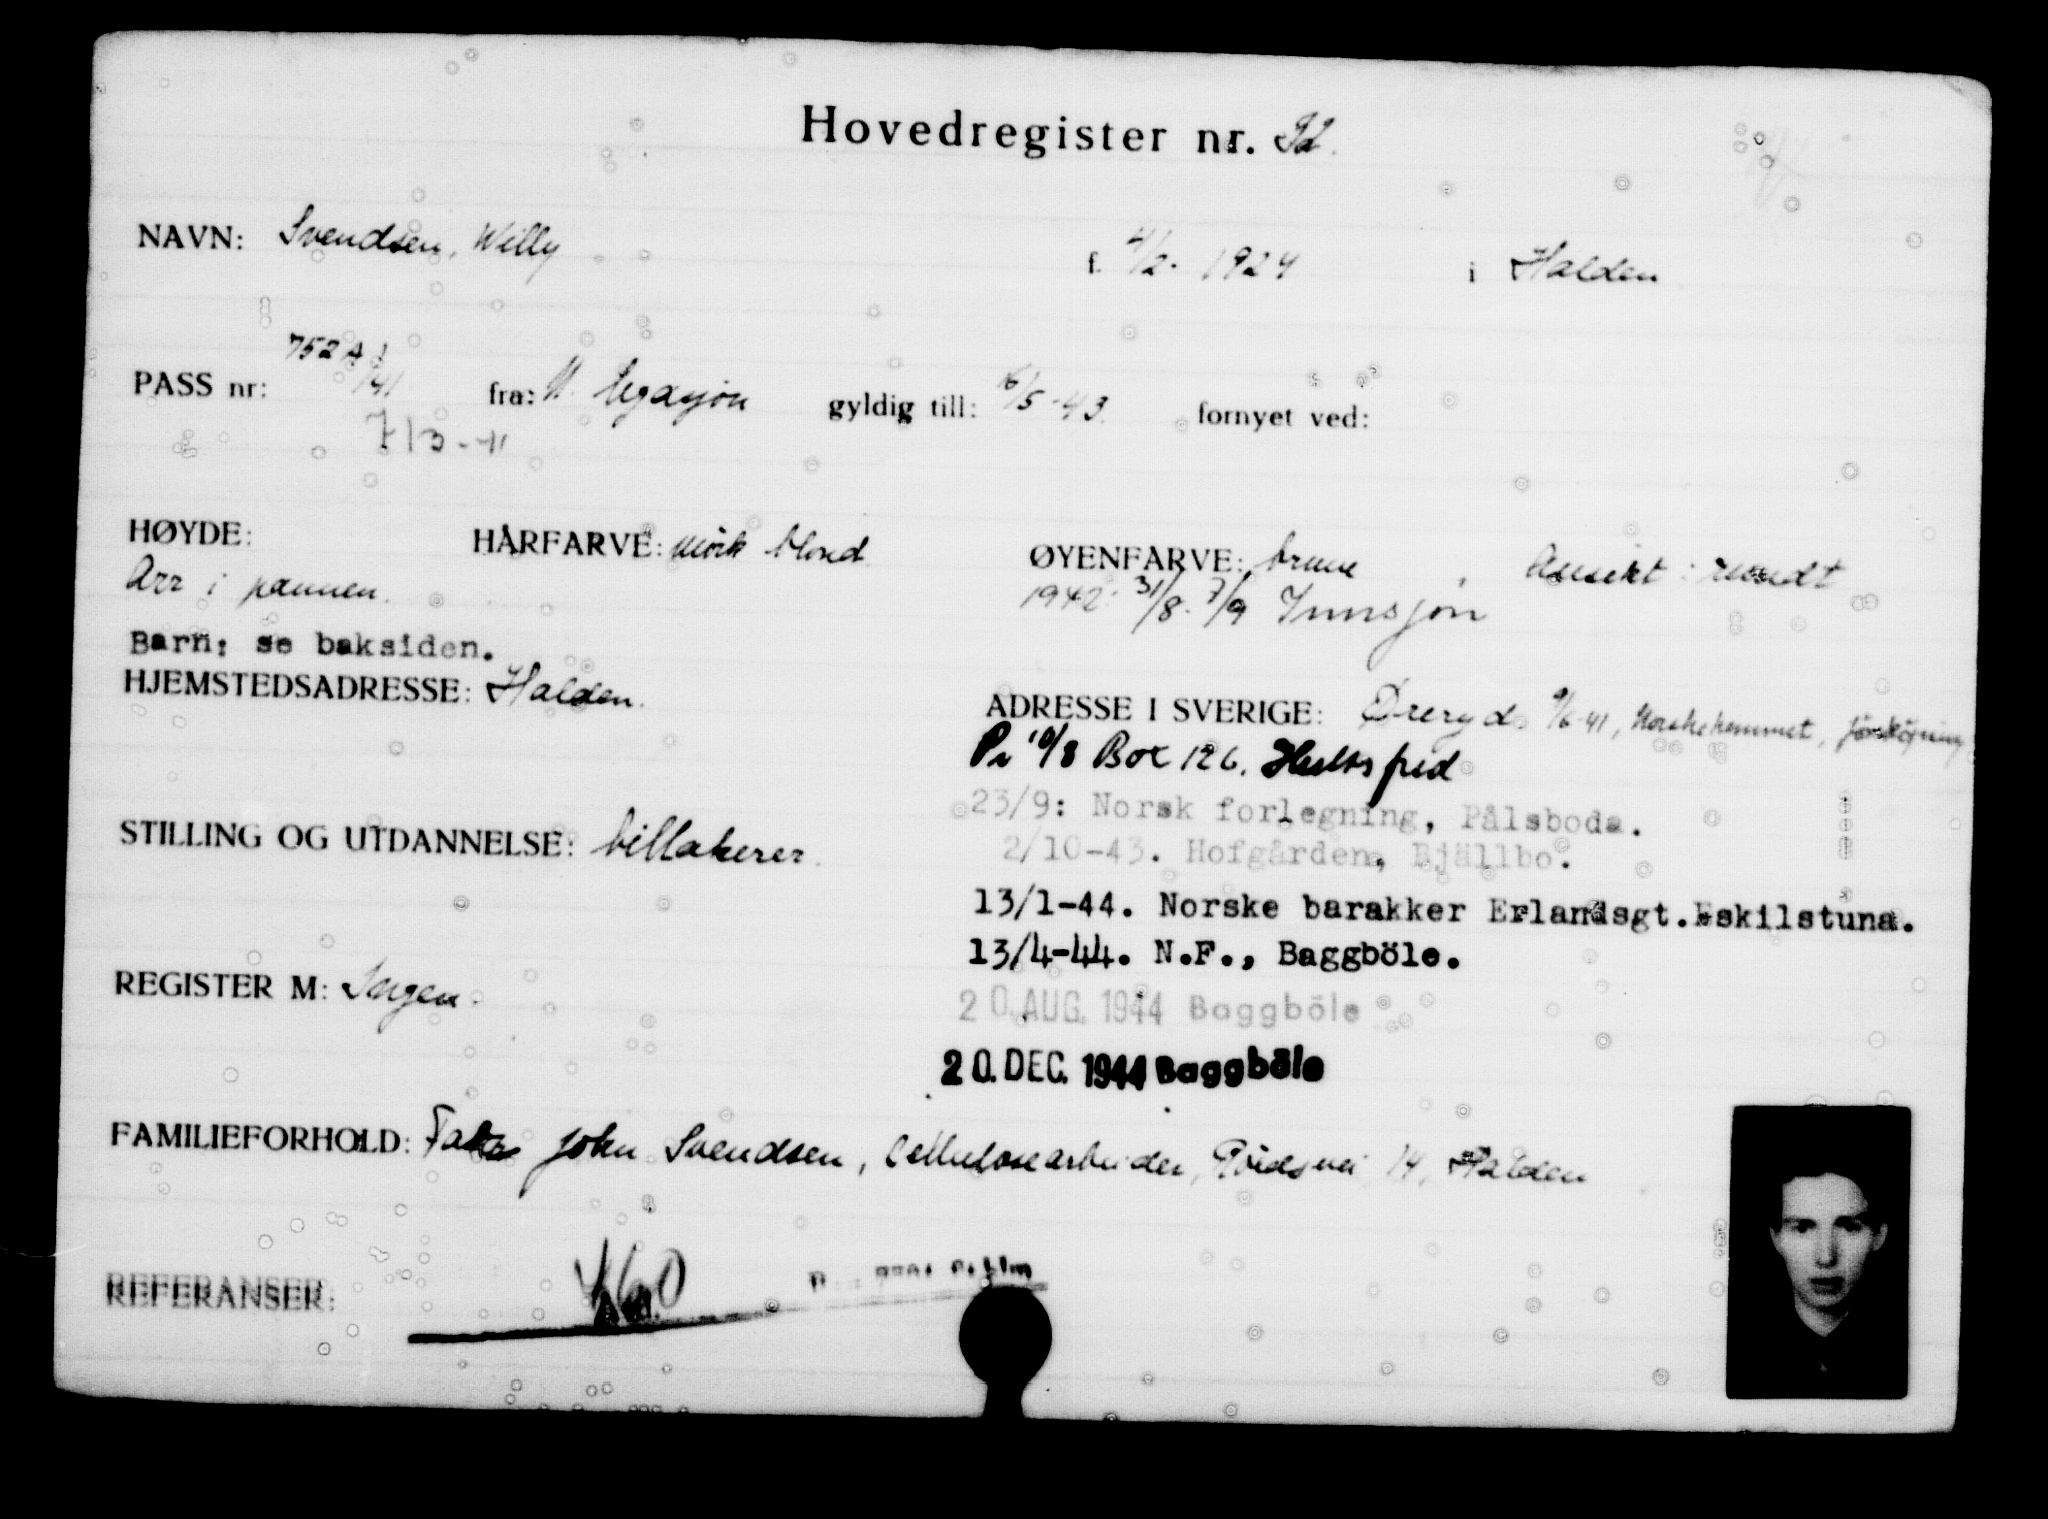 Hovedregister nr. 92.
NAVN: Svendsen, Willy f. 4/2. 1924 i Halden
752 A
PASS nr: /41 fra: N. legasjon gyldig till: 16/5-43. fornyet ved:
713-41
HØYDE: HÅRFARVE: mörk blond. ØYENFARVE: brune Ansikt: rundt
Arr i pannen. 1942: 31/8. 7/9
Barn: se baksiden.
HJEMSTEDSADRESSE: Halden. ADRESSE I SVERIGE: Øreryd. 9/6-41, Norskehemmet, Jönköping
10/8 Box 126. Hultsfred
23/9: Norsk forlegning, Pålsboda.
STILLING OG UTDANNELSE: billakerer.
2/10-43. Hofgården, Bjällbo.
13/1-44. Norske barakker Erlandsgt. Eskilstuna.
13/4-44. N.F., Baggböle.
REGISTER M: Ingen.
20. AUG. 1944 Baggböle
20. DEC. 1944 Baggböle
FAMILIEFORHOLD: Fader John Svendsen, Cellulosearbeider, 14, Halden
REFERANSER: